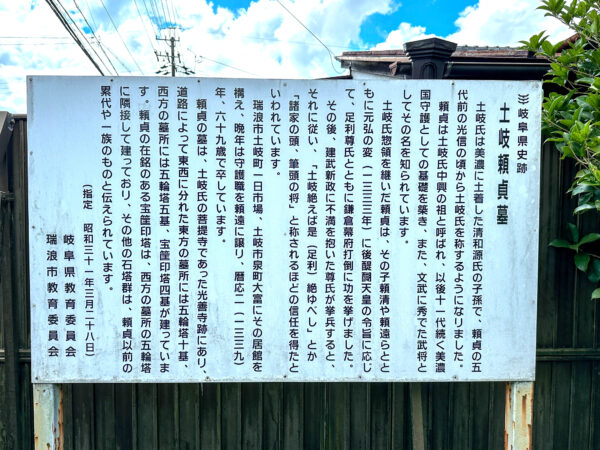 岐阜県史跡
土岐頼貞墓
土岐氏は美濃に土着した清和源氏の子孫で、頼貞の五
代前の光信の頃から土岐氏を称するようになりました。
頼貞は土岐氏中興の祖と呼ばれ、以後十一代続く美濃
国守護としての基礎を築き、また、文武に秀でた武将と
してその名を知られています。
土岐氏惣領を継いだ頼貞は、その子頼清や頼遠らとと
もに元弘の変（一三三三年）に後醍醐天皇の令旨に応じ
て、足利尊氏とともに鎌倉幕府打倒に功を挙げました。
その後、建武新政に不満を抱いた尊氏が挙兵すると、
それに従い、「土岐絶えば是（足利）絶ゆべし」とか
「諸家の頭、筆頭の将」と称されるほどの信任を得たと
いわれています。
瑞浪市土岐町一日市場、土岐市泉町大富にその居館を
構え、晩年は守護職を頼遠に譲り、暦応二（一三三九）
年、六十九歳で卒しています。
頼貞の墓は、土岐氏の菩提寺であった光善寺跡にあり、
道路によって東西に分れた東方の墓所には五輪塔十基、
西方の墓所には五輪塔五基、宝篋印塔四基が建っていま
す。頼貞の在銘のある宝篋印塔は、西方の墓所の五輪塔
に隣接して建っており、その他の石塔群は、頼貞以前の
累代や一族のものと伝えられています。
（指定　昭和三十一年三月二十八日）
岐阜県教育委員会
瑞浪市教育委員会